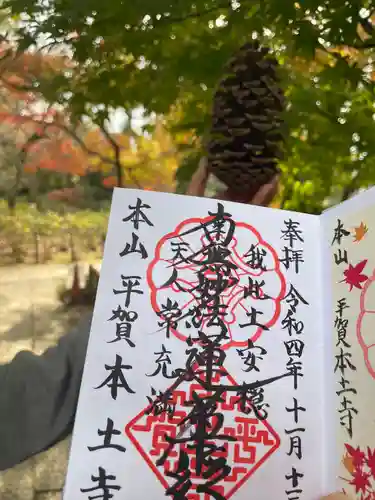 本山 平賀 本土寺
奉拝 令和四年十一月十
我此土安穏
南無妙法蓮華経
天人常充満
本山 平賀 本土寺